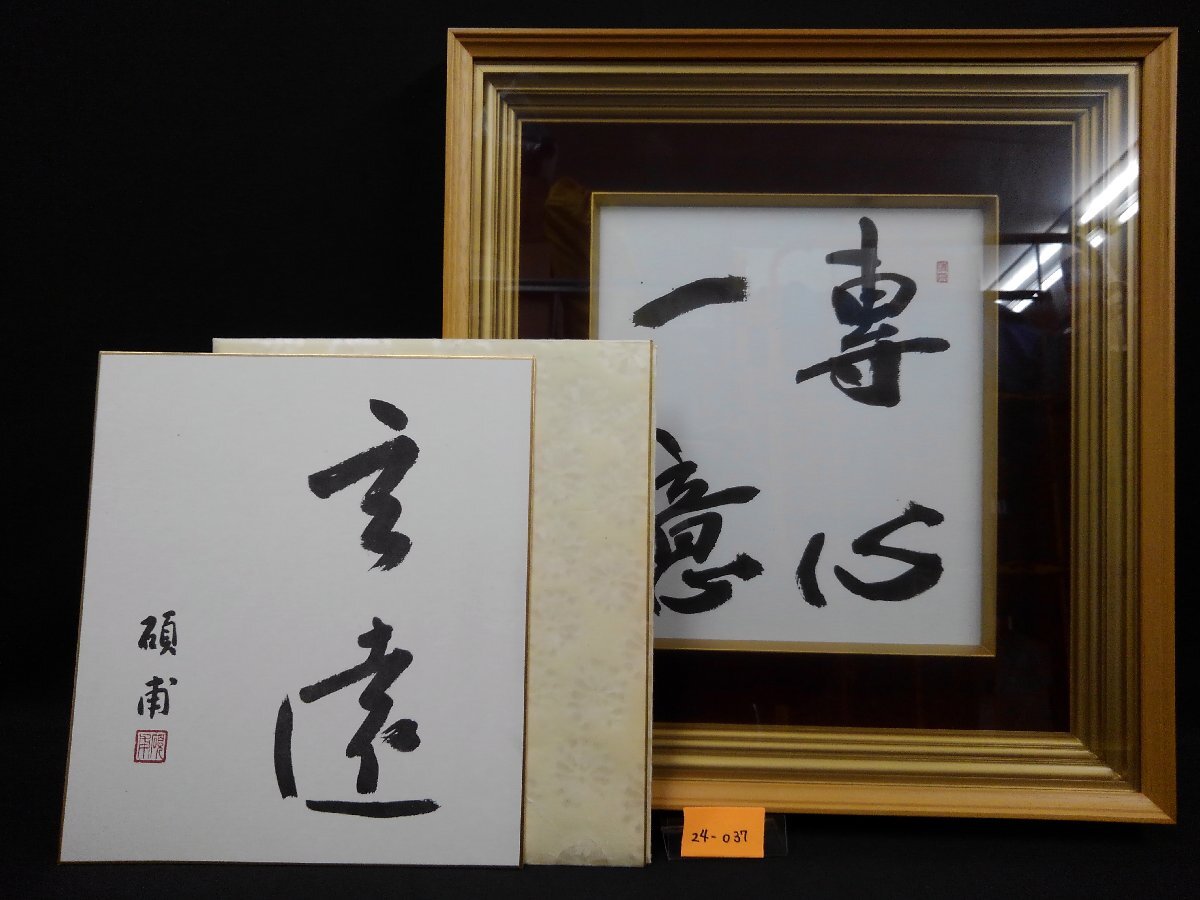 專心
一意
玄遠
碩甫
24-037